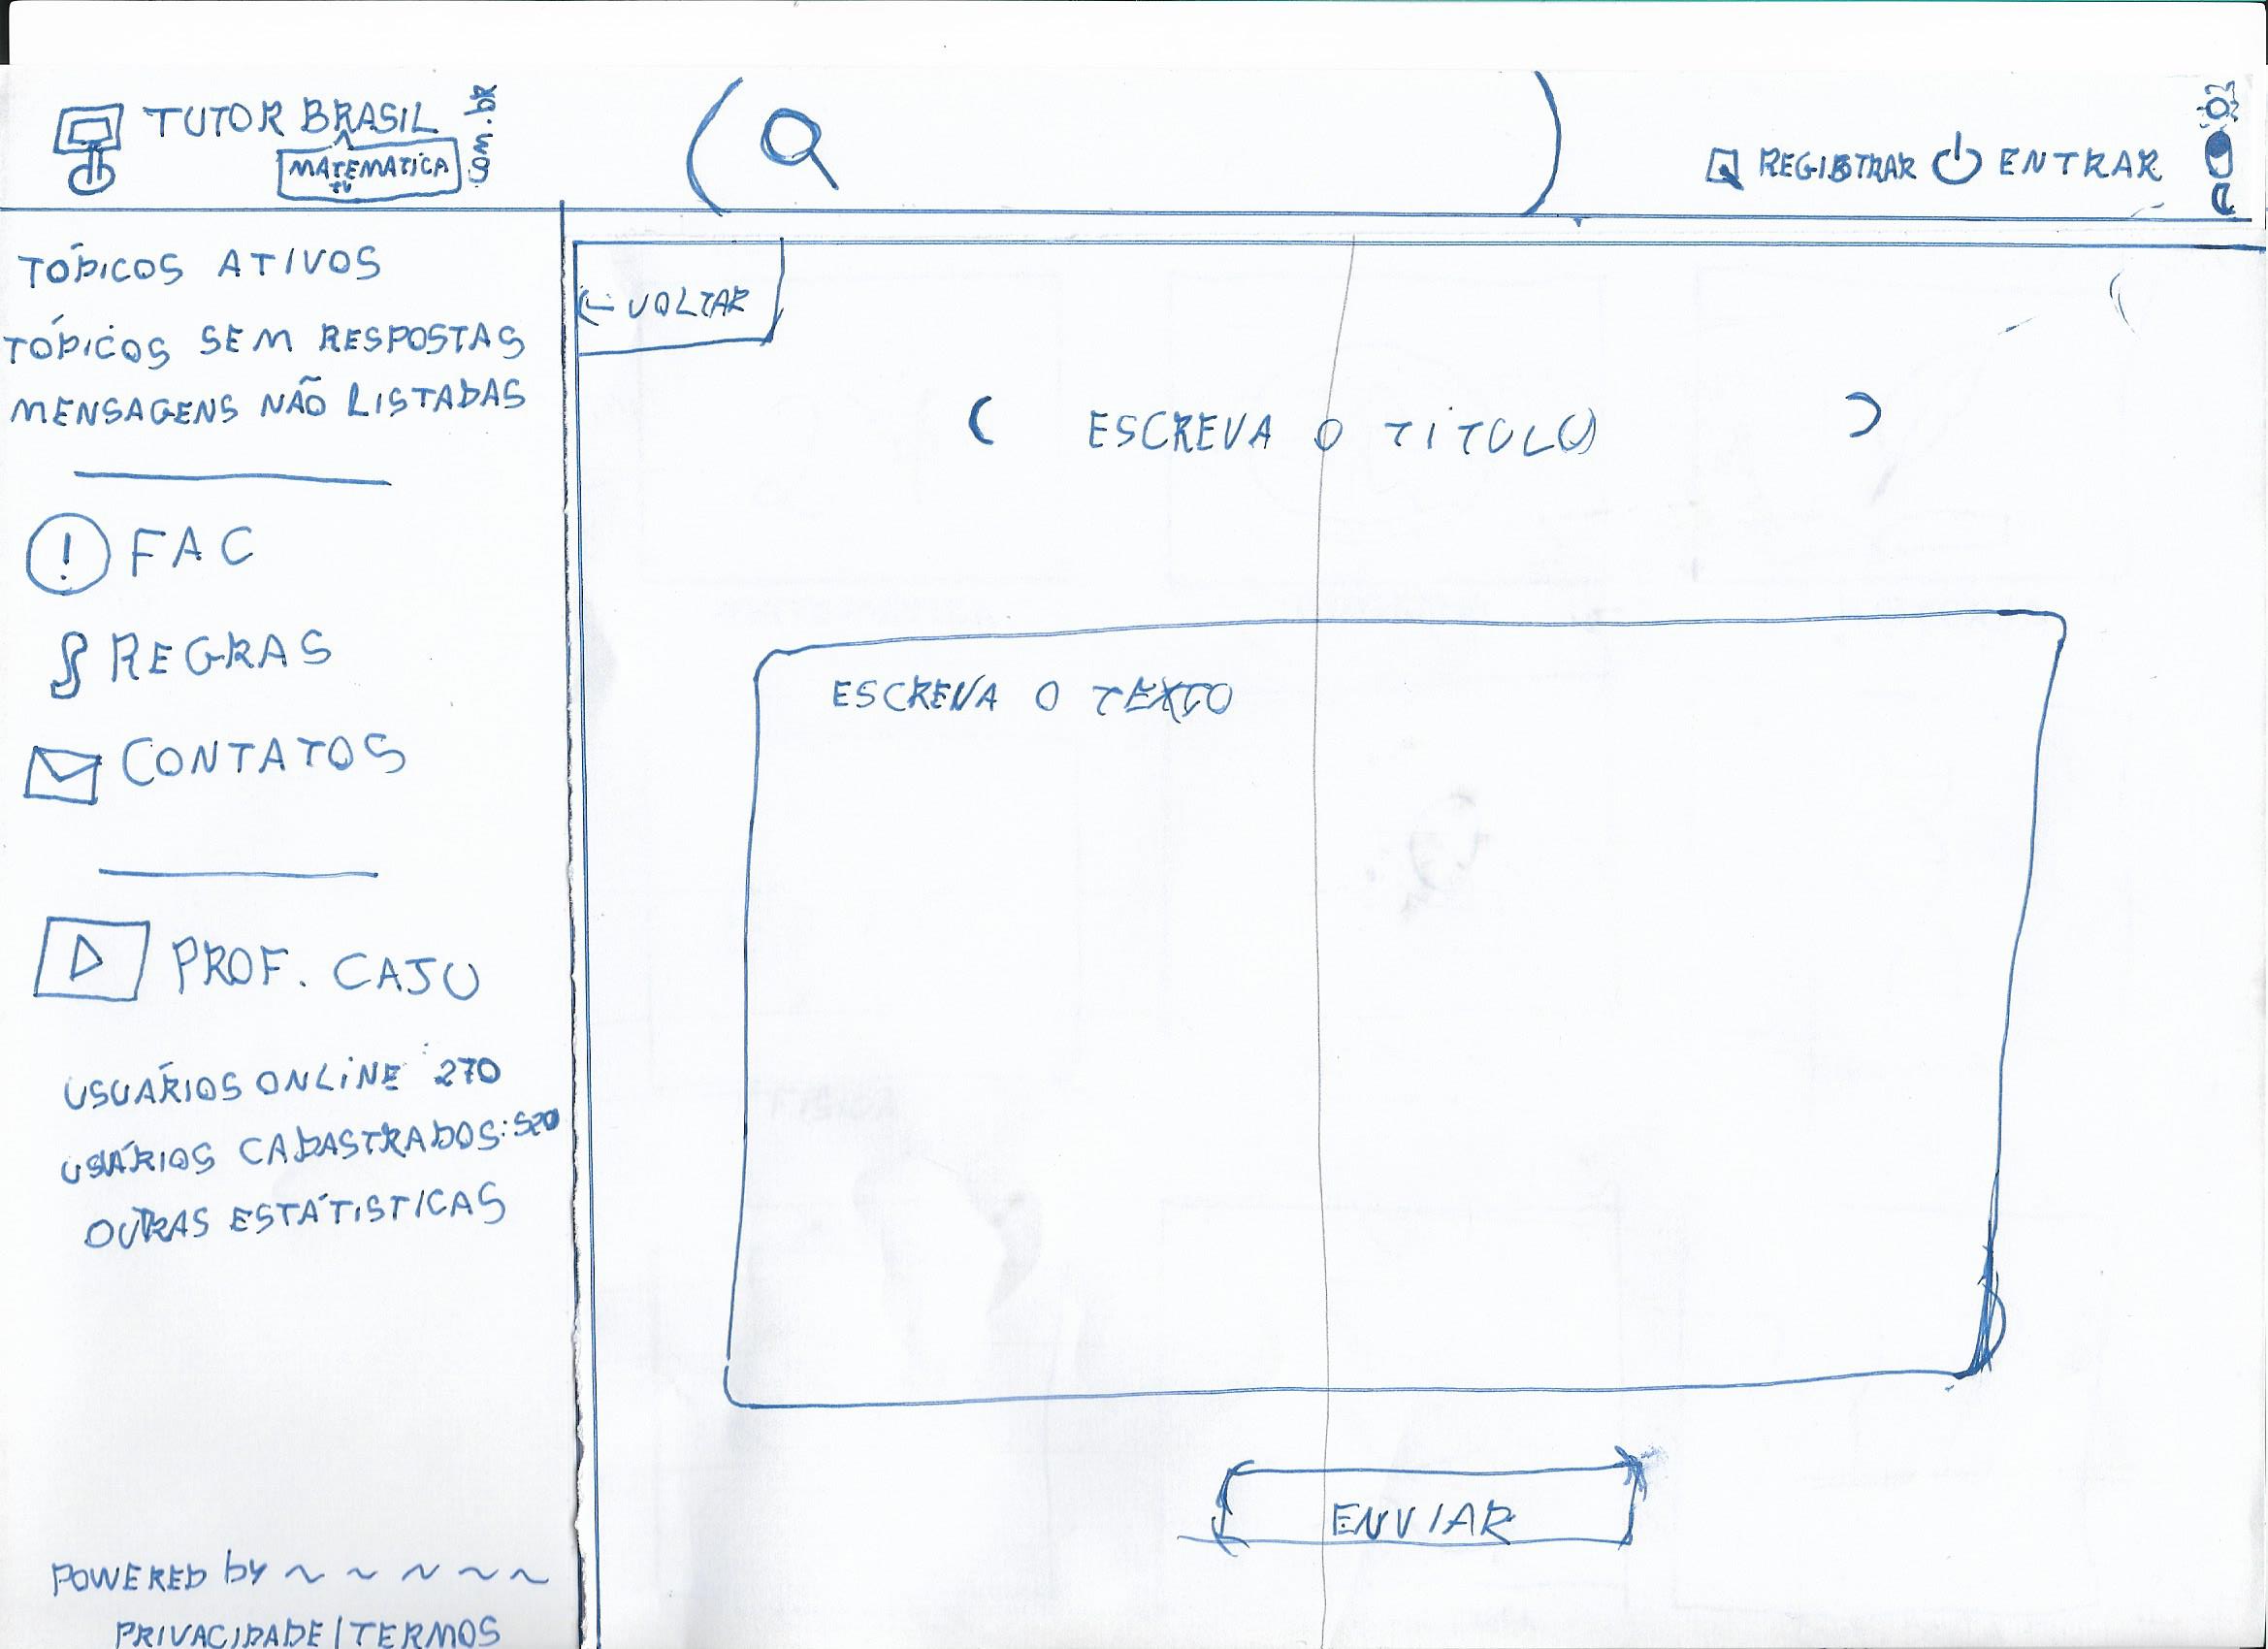 TUTOR BRASIL
.com.br
MATEMATICA
TV
REGISTRAR
ENTRAR
TÓPICOS ATIVOS
TÓPICOS SEM RESPOSTAS
MENSAGENS NÃO LISTADAS
! FAC
REGRAS
CONTATOS
PROF. CAJU
USUÁRIOS ONLINE : 270
USÁRIOS CADASTRADOS: 520
OUTRAS ESTÁTISTICAS
POWERED by ~ ~ ~ ~ ~
PRIVACIDADE / TERMOS
← VOLTAR
( ESCREVA O TITULO )
ESCREVA O TEXTO
ENVIAR